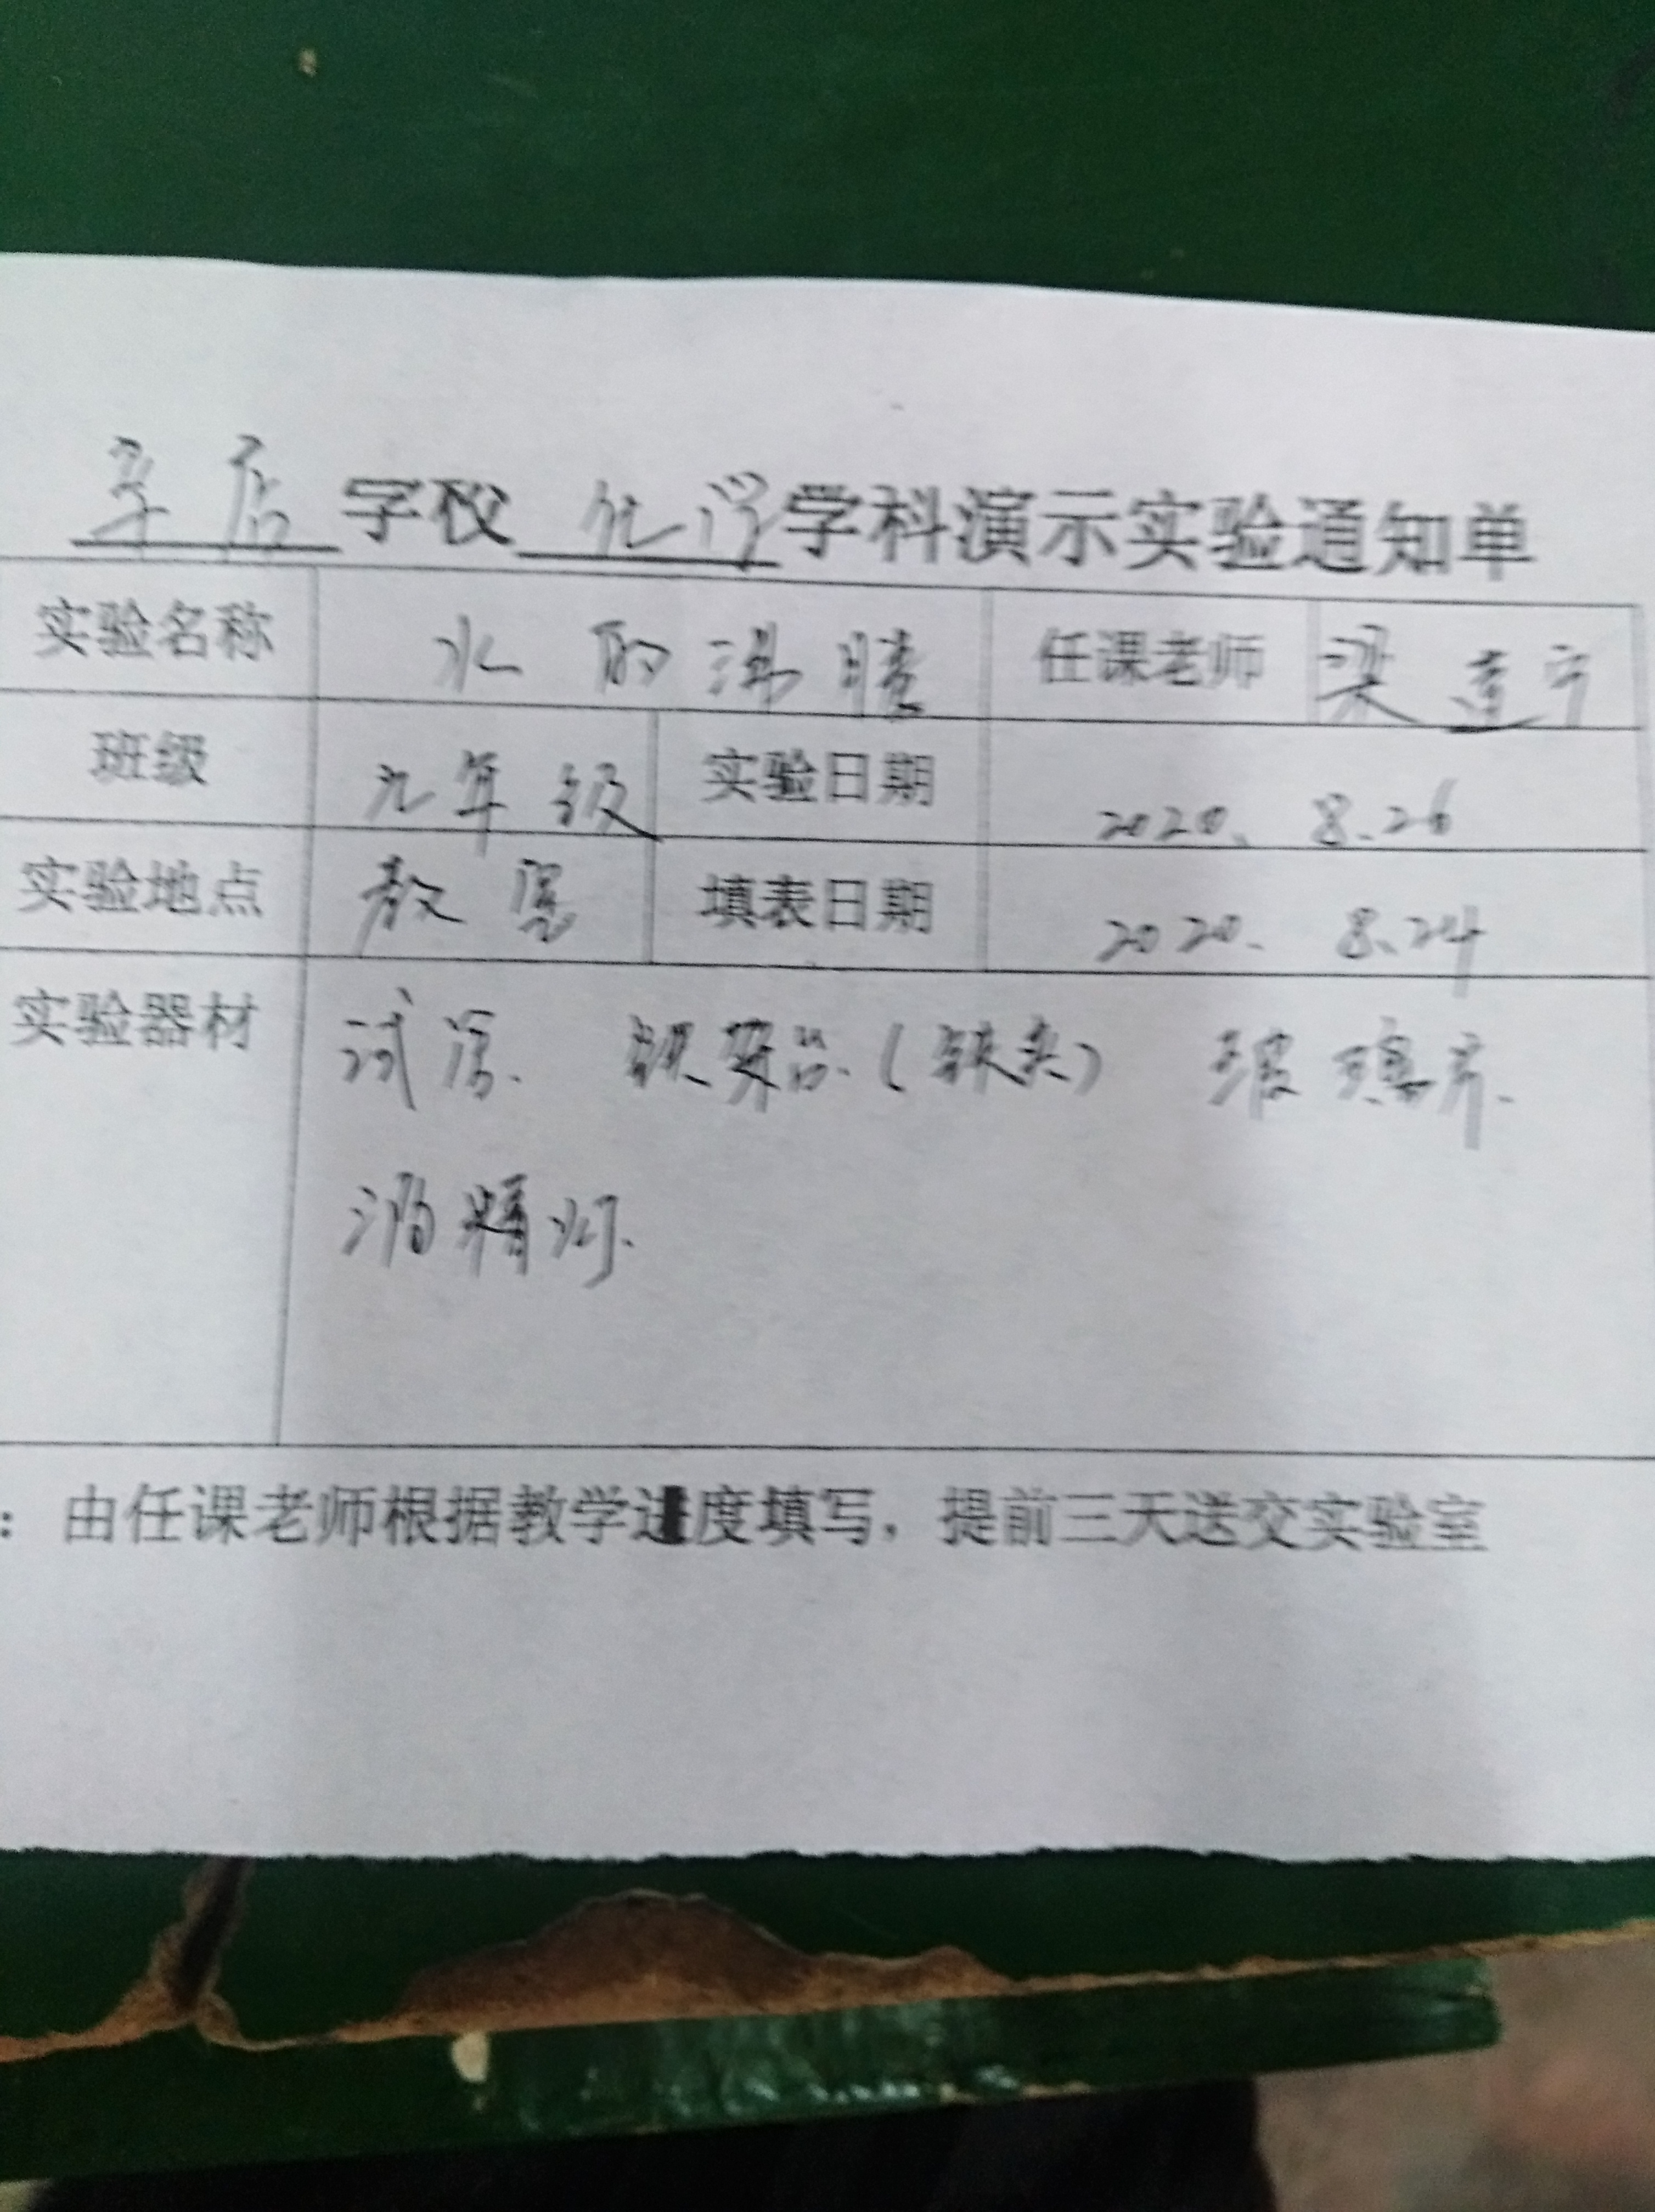 辛店学校 化学学科演示实验通知单
实验名称 水的沸腾 任课老师 梁
班级 九年级 实验日期 2020. 8.26
实验地点 教室 填表日期 2020. 8.24
实验器材 试管. 铁架台.(铁夹) 玻璃片.
酒精灯.
：由任课老师根据教学进度填写，提前三天送交实验室